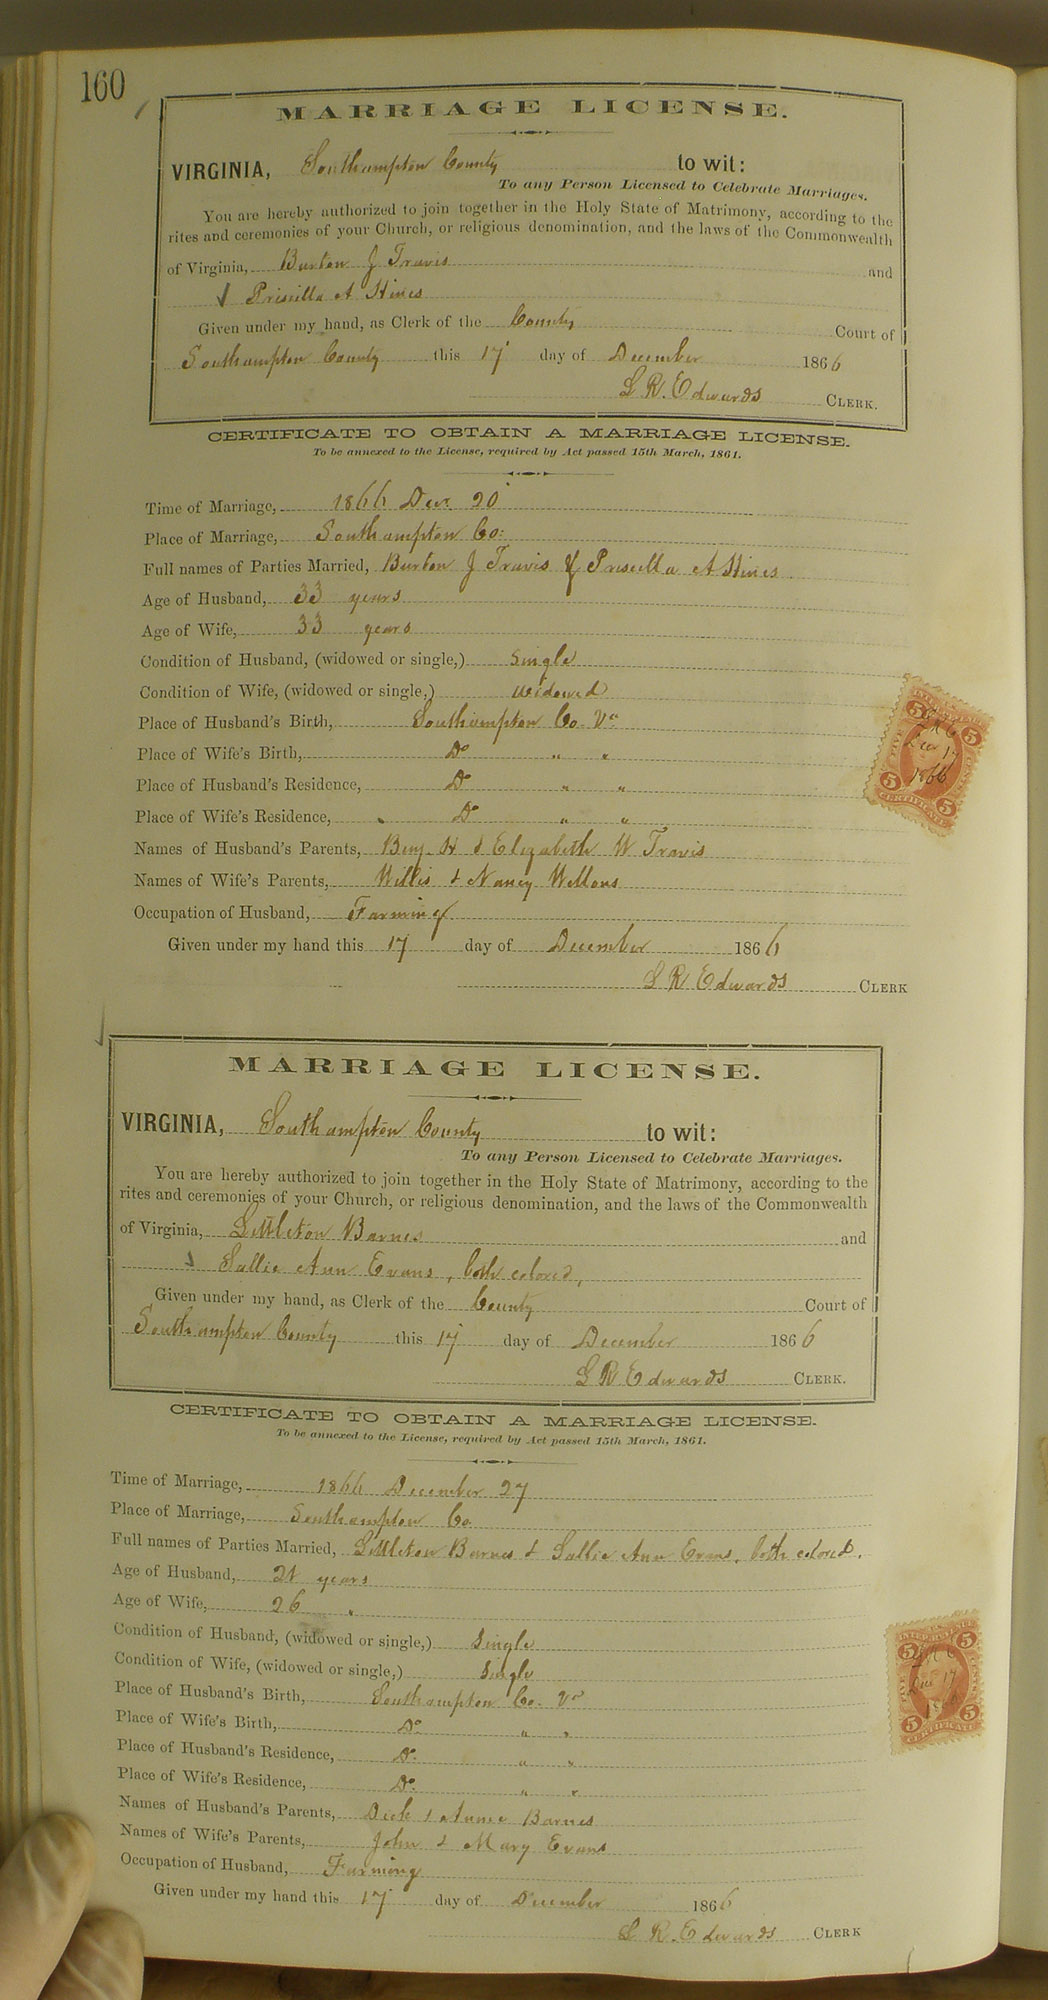 160
MARRIAGE LICENSE.
VIRGINIA, Southampton County to wit:
To any Person Licensed to Celebrate Marriages.
You are hereby authorized to join together in the Holy State of Matrimony, according to the
rites and ceremonies of your Church, or religious denomination, and the laws of the Commonwealth
of Virginia, Burton J Travis and
Priscilla A Hines
Given under my hand, as Clerk of the County Court of
Southampton County this 17 day of December 1866
L R. Edwards CLERK.
CERTIFICATE TO OBTAIN A MARRIAGE LICENSE.
To be annexed to the License, required by Act passed 15th March, 1861.
Time of Marriage, 1866 Dec. 20
Place of Marriage, Southampton Co:
Full names of Parties Married, Burton J Travis & Priscilla A Hines
Age of Husband, 33 years
Age of Wife, 33 years
Condition of Husband, (widowed or single,) Single
Condition of Wife, (widowed or single,) Widowed
Place of Husband's Birth, Southampton Co. Va
Place of Wife's Birth, Do " "
Place of Husband's Residence, Do " "
Place of Wife's Residence, Do " "
Names of Husband's Parents, Benj. & Elizabeth W Travis
Names of Wife's Parents, Willis & Nancy Wellons
Occupation of Husband, Farming
Given under my hand this 17 day of December 1866
L R Edwards CLERK
INTER. REVENUE
5 5
FIVE CENTS
Dec 17
1866
5 5
CERTIFICATE
MARRIAGE LICENSE.
VIRGINIA, Southampton County to wit:
To any Person Licensed to Celebrate Marriages.
You are hereby authorized to join together in the Holy State of Matrimony, according to the
rites and ceremonies of your Church, or religious denomination, and the laws of the Commonwealth
of Virginia, Littleton Barnes and
Sallie Ann Evans, both colored,
Given under my hand, as Clerk of the County Court of
Southampton County this 17 day of December 1866
L R Edwards CLERK.
CERTIFICATE TO OBTAIN A MARRIAGE LICENSE.
To be annexed to the License, required by Act passed 15th March, 1861.
Time of Marriage, 1866 December 27
Place of Marriage, Southampton Co.
Full names of Parties Married, Littleton Barnes & Sallie Ann Evans, both colored.
Age of Husband, years
Age of Wife, 26 "
Condition of Husband, (widowed or single,) Single
Condition of Wife, (widowed or single,) Single
Place of Husband's Birth, Southampton Co. Va
Place of Wife's Birth, Do " "
Place of Husband's Residence, Do " "
Place of Wife's Residence, Do " "
Names of Husband's Parents, Dick & Annie Barnes
Names of Wife's Parents, John & Mary Evans
Occupation of Husband, Farming
Given under my hand this 17 day of December 1866
L R. Edwards CLERK
INTER. REVENUE
5 5
FIVE CENTS
Dec 17
5 5
CERTIFICATE